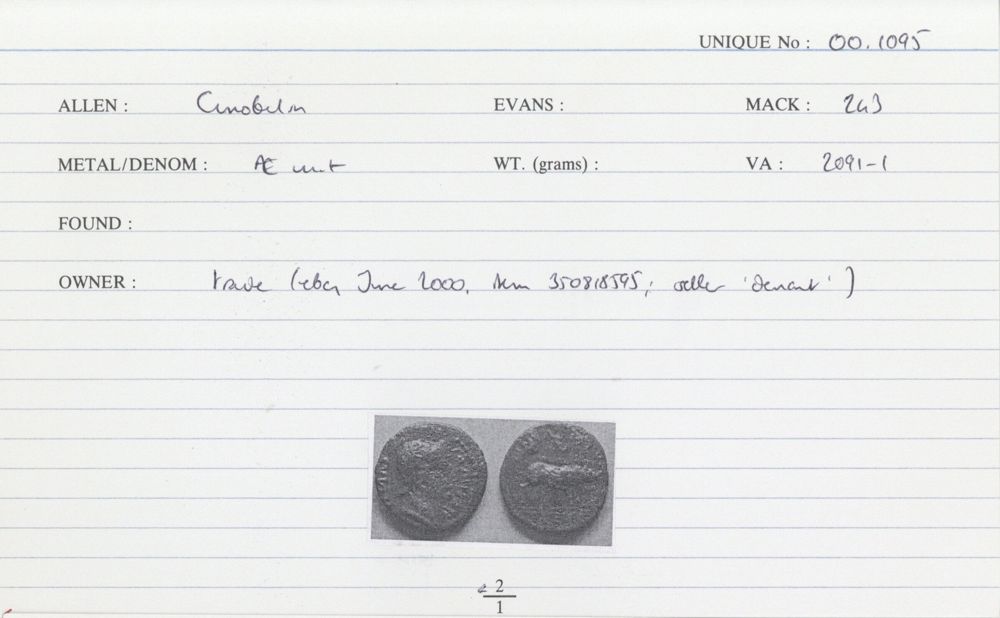 UNIQUE No : 00.1095
ALLEN : Cunobelin EVANS : MACK : 243
METAL/DENOM : Æ unit WT. (grams) : VA : 2091-1
FOUND :
OWNER : trade (eBay June 2000, item 350818595; seller
2
1